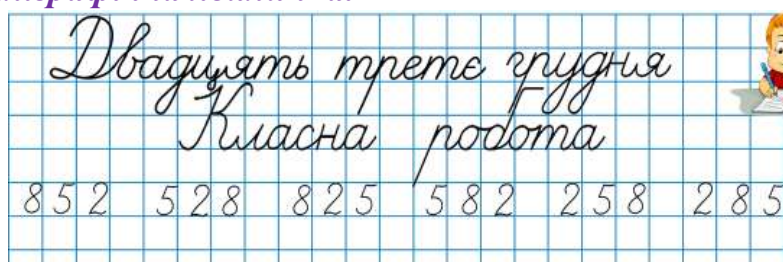 Двадцять третє грудня
Класна робота
852 528 825 582 258 285